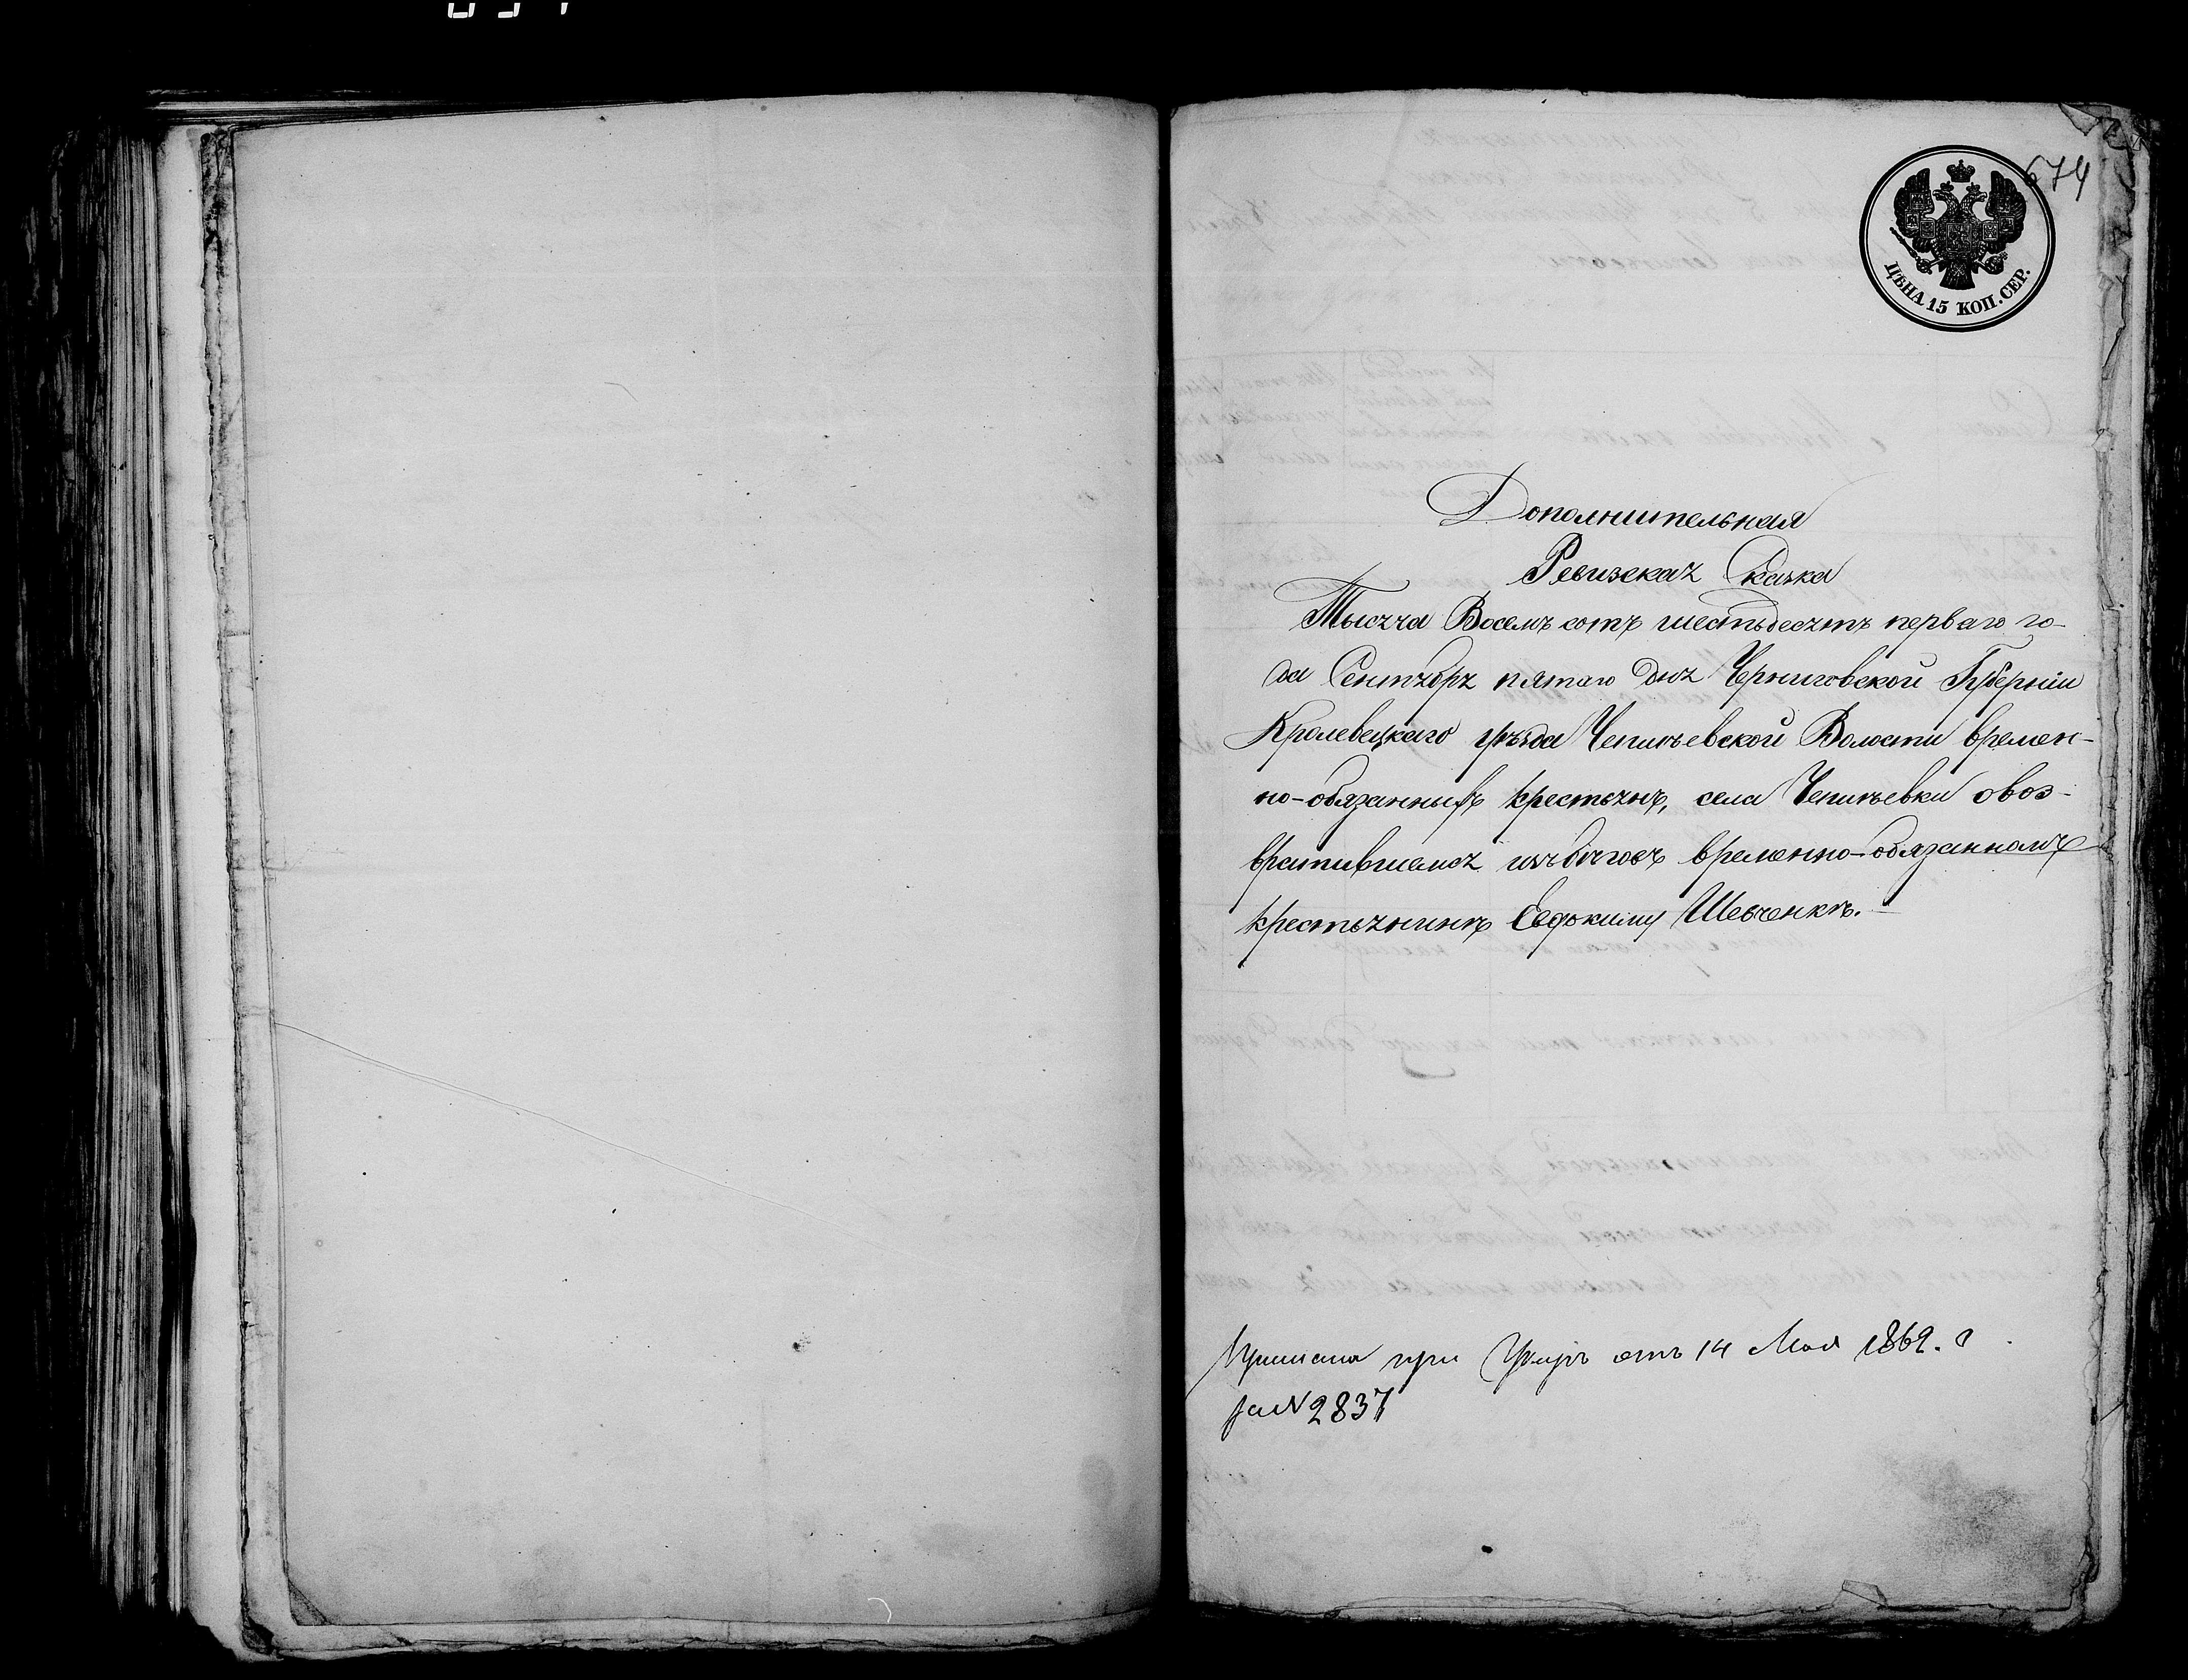 674
ЦѢНА 15 КОП. СЕР.
Дополнительная
Ревизская Сказка
Тысяча Восемъ сотъ шестьдесятъ перваго го-
да Сентября пятаго дня Черниговской Губерніи
Кролевецкаго уѣзда Чепліевской Волости времен-
но-обязанныхъ крестьянъ, села Чепліевки о воз-
вратившемся изъ бѣговъ временно-обязанномъ
крестьянинѣ Евдокиму Шевченкѣ.
при Указѣ отъ 14 Мая 1862. г
за N 2837